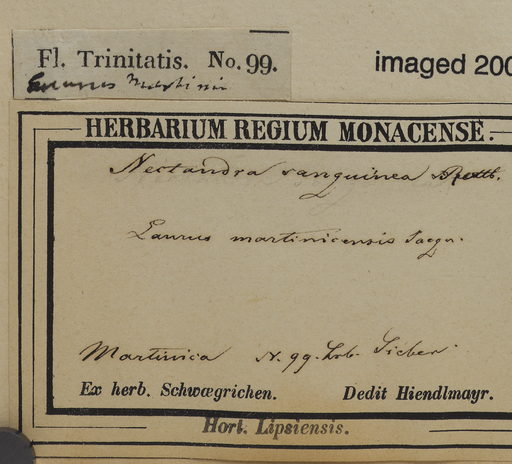 Fl. Trinitatis. No. 99.
imaged 200
HERBARIUM REGIUM MONACENSE
Nectandra sanguinea Rottb.
Laurus martinicensis Jacqu.
Martinica N. 99. hrb. Sieber.
Ex herb. Schwægrichen. Dedit Hiendlmayr.
Hort. Lipsiensis.